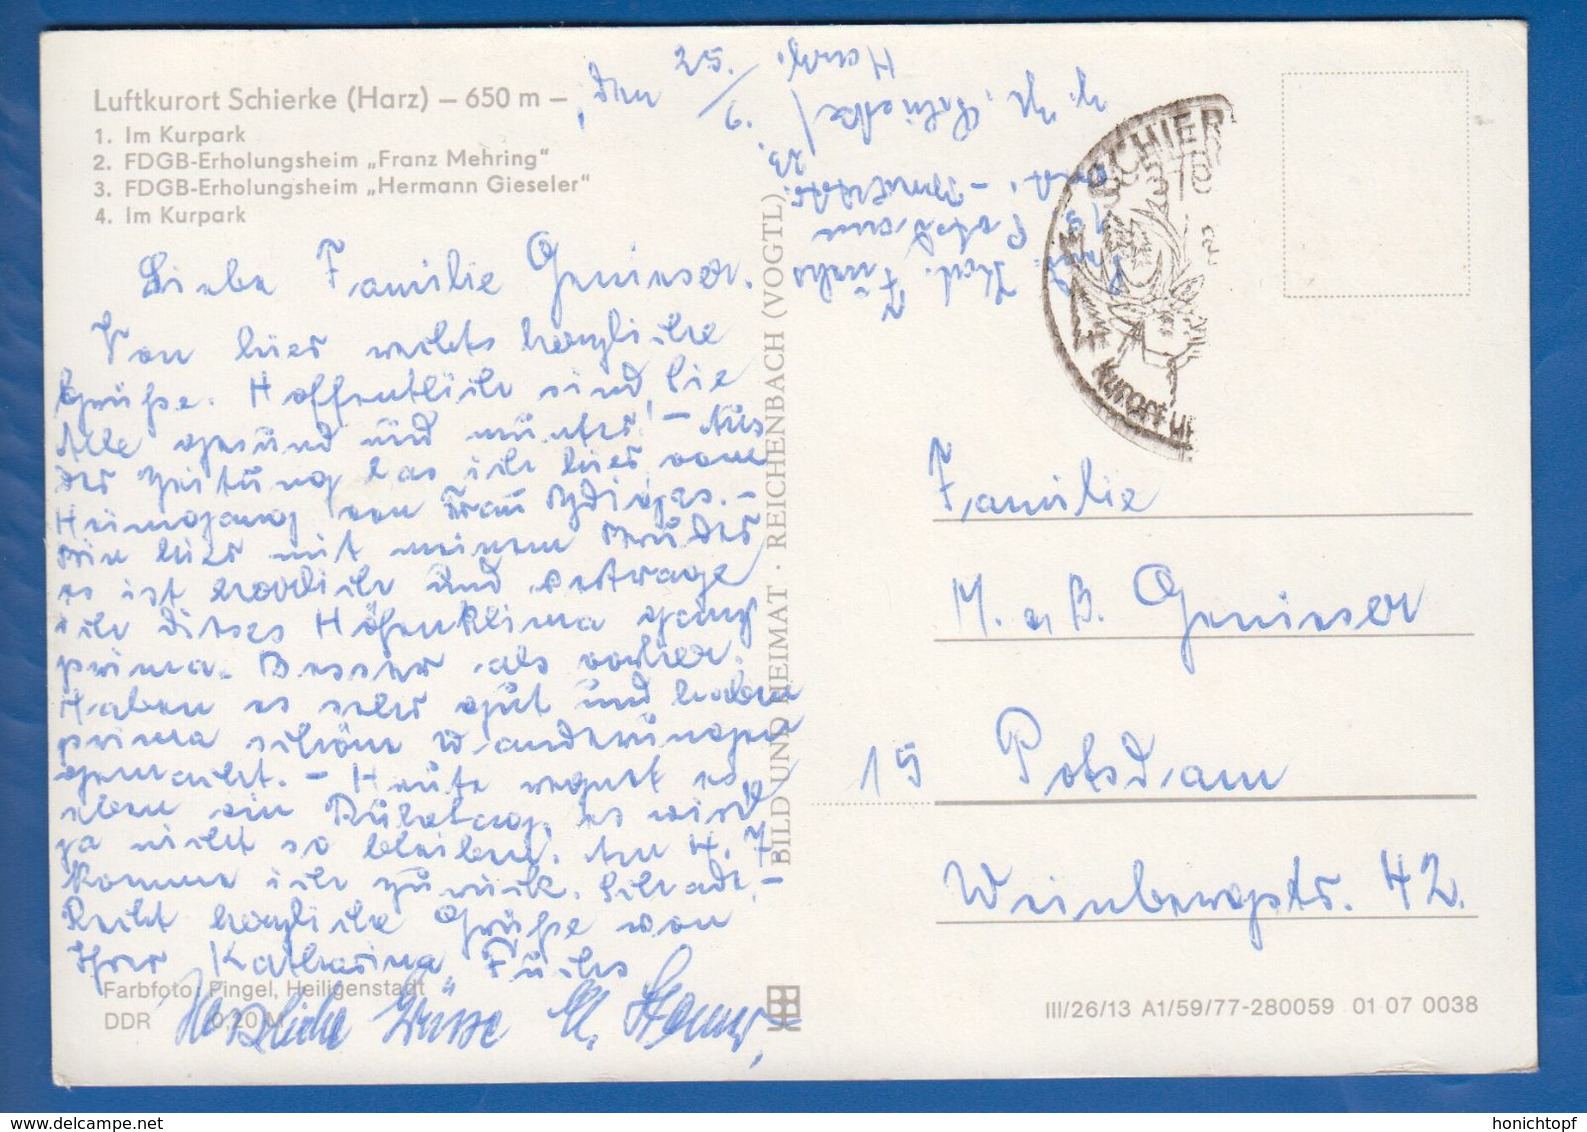 Luftkurort Schierke (Harz) – 650 m –
1. Im Kurpark
2. FDGB-Erholungsheim „Franz Mehring“
3. FDGB-Erholungsheim „Hermann Gieseler“
4. Im Kurpark
, den 25./6.
Liebe Familie Genieser.
Von hier rechts herzliche
Grüße. Hoffentlich sind Sie
Alle gesund und munter! – Aus
der Zeitung las ich hier vom
Heimgang von Frau
Bin hier mit meinem Bruder
es ist herrlich und vertrage
ich dieses Höhenklima ganz
prima. Besser als vorher.
Haben es sehr gut und haben
prima schöne Wanderungen
gemacht. – Heute regnet es,
eben ein Ruhetag, es wird
ja nicht so bleiben. Am 4. 7.
komme ich zurück. Schade, –
Recht herzliche Grüße von
Ihrer Katharina Fuchs
Herzliche Grüsse
Farbfoto: Pingel, Heiligenstadt
DDR 0,20 M
BILD UND HEIMAT · REICHENBACH (VOGTL)
Kath. Fuchs
15 Potsdam
Schierke/
Harz.
SCHIER
370
KURORT
Familie
M. u. B. Genieser
15 Potsdam
Weinbergstr. 42.
III/26/13 A1/59/77-280059 01 07 0038
www.delcampe.net
honichtopf